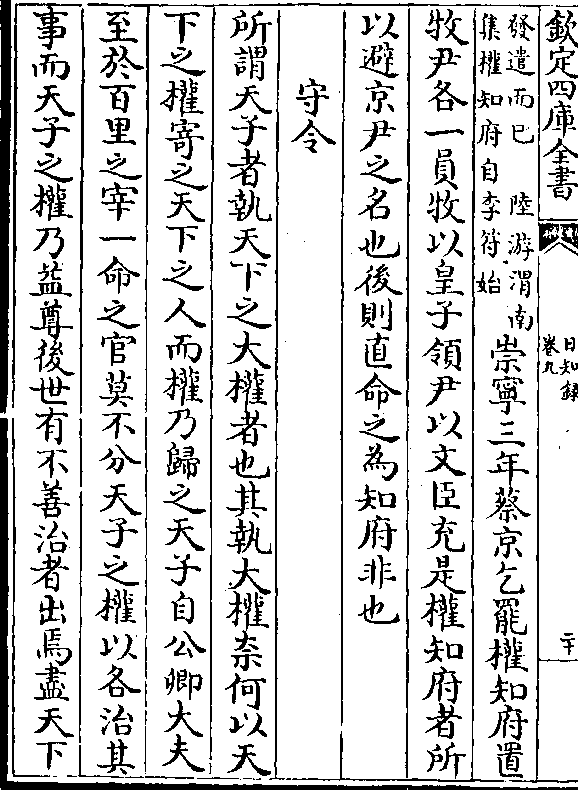 欽定四庫全書
日知錄
卷九
二十
發遣而已　陸游渭南
集權知府自李符始
崇寧三年蔡京乞罷權知府置
牧尹各一員牧以皇子領尹以文臣充是權知府者所
以避京尹之名也後則直命之為知府非也
守令
所謂天子者執天下之大權者也其執大權柰何以天
下之權寄之天下之人而權乃歸之天子自公卿大夫
至於百里之宰一命之官莫不分天子之權以各治其
事而天子之權乃益尊後世有不善治者出焉盡天下